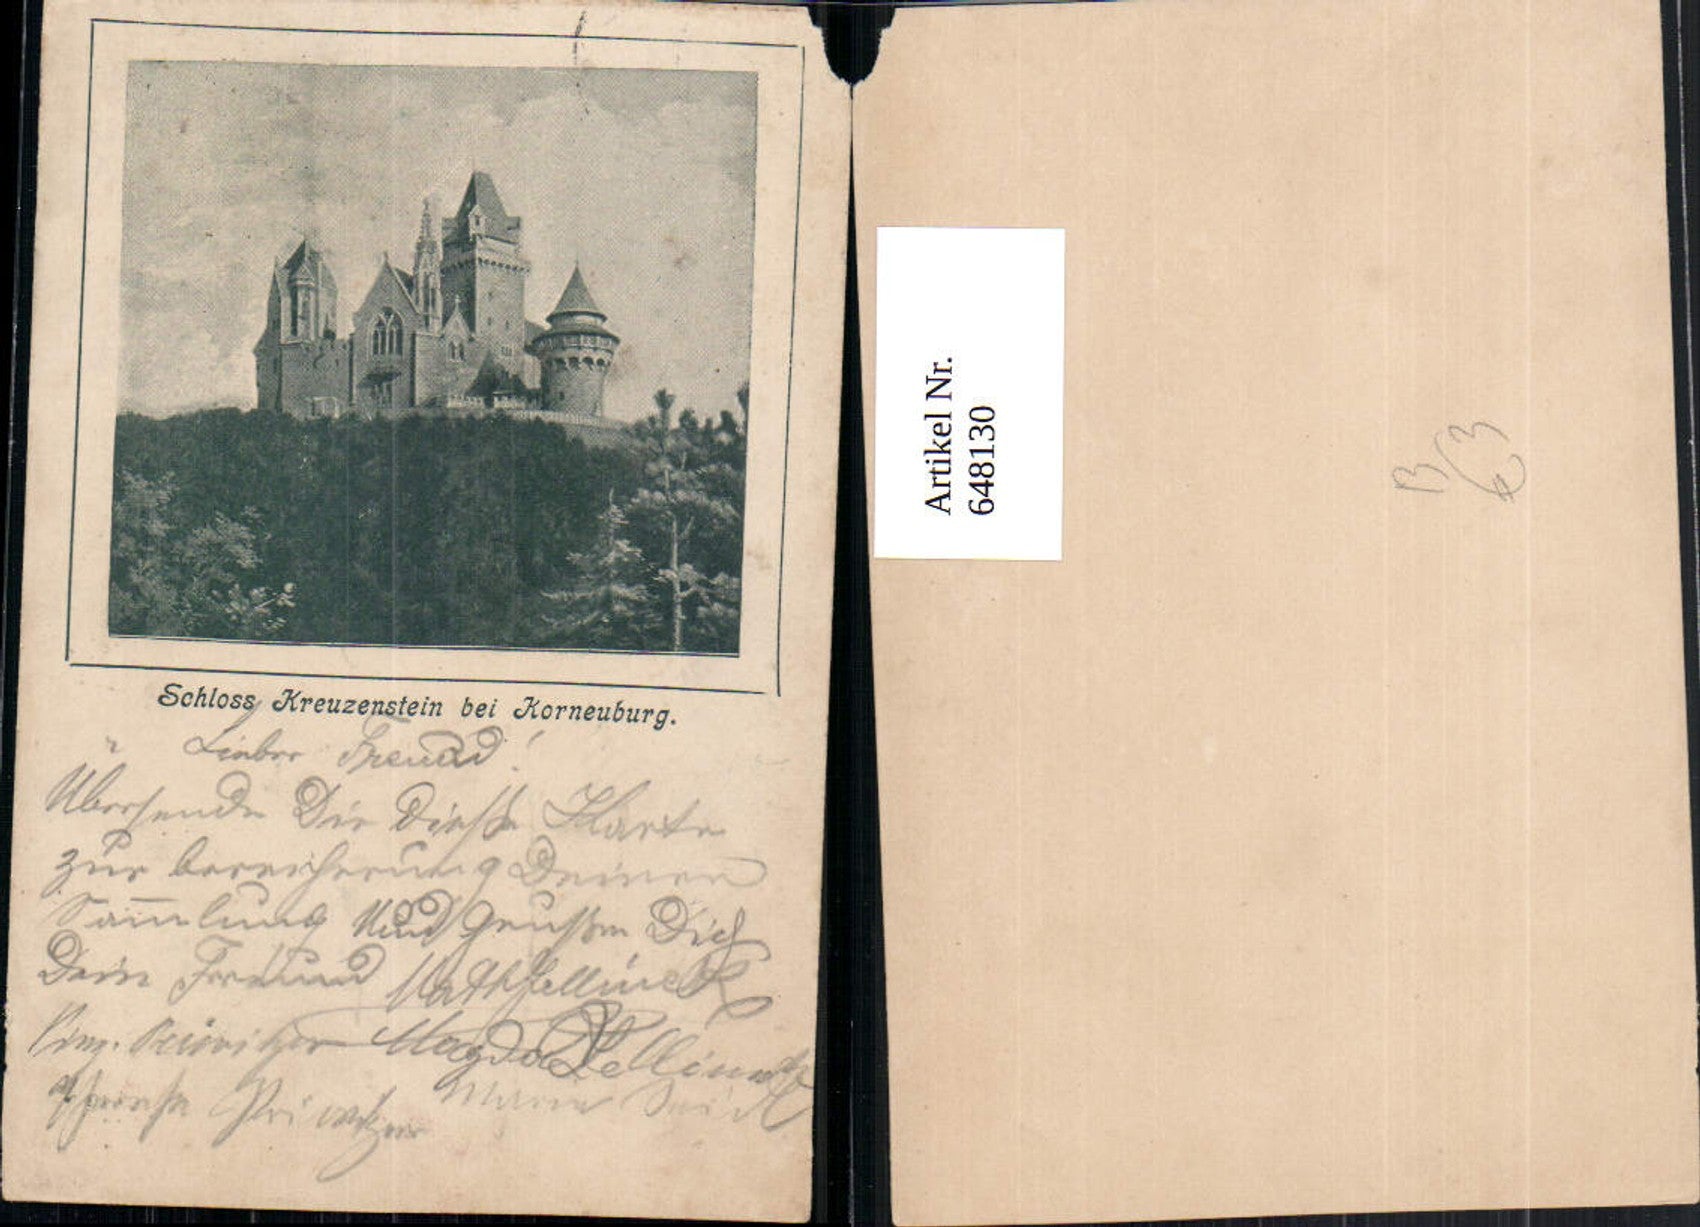 Schloss Kreuzenstein bei Korneuburg.
Lieber Freund!
Übersende Dir diese Karte
zur bereicherung Deiner
Sammlung und grüßen Dich
Dein Freund
Magda
Marie
Artikel Nr.
648130
B
63